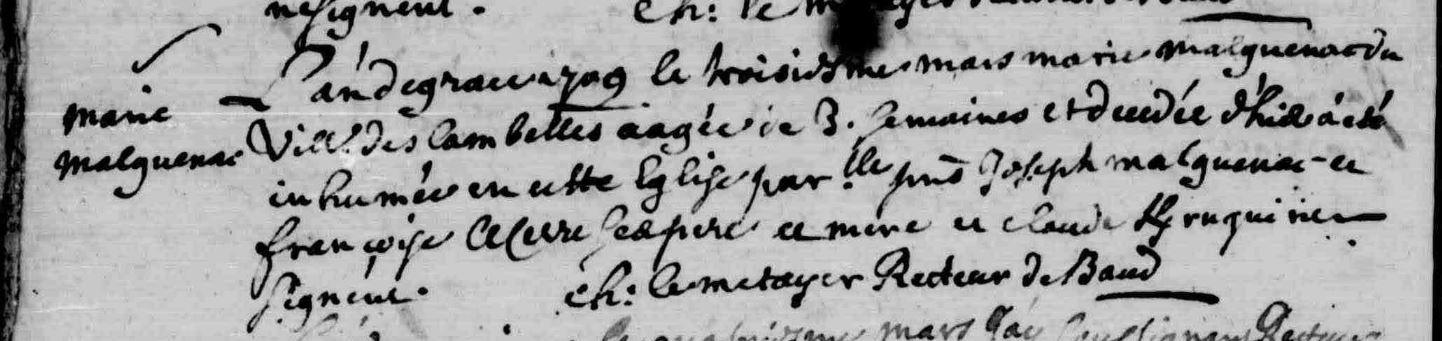 nesignent.
L'an de grace 1709 le troisiesme mars marie malguenac du
marie
malguenac
Vill: des lambelles aagée de 3. semaines et decedée d'hier a esté
inhumée en cette Eglise par lle pnts Joseph malguenac et
françoise ses pere et mere et claude
signent.
ch: le metayer Recteur de Baud
mars